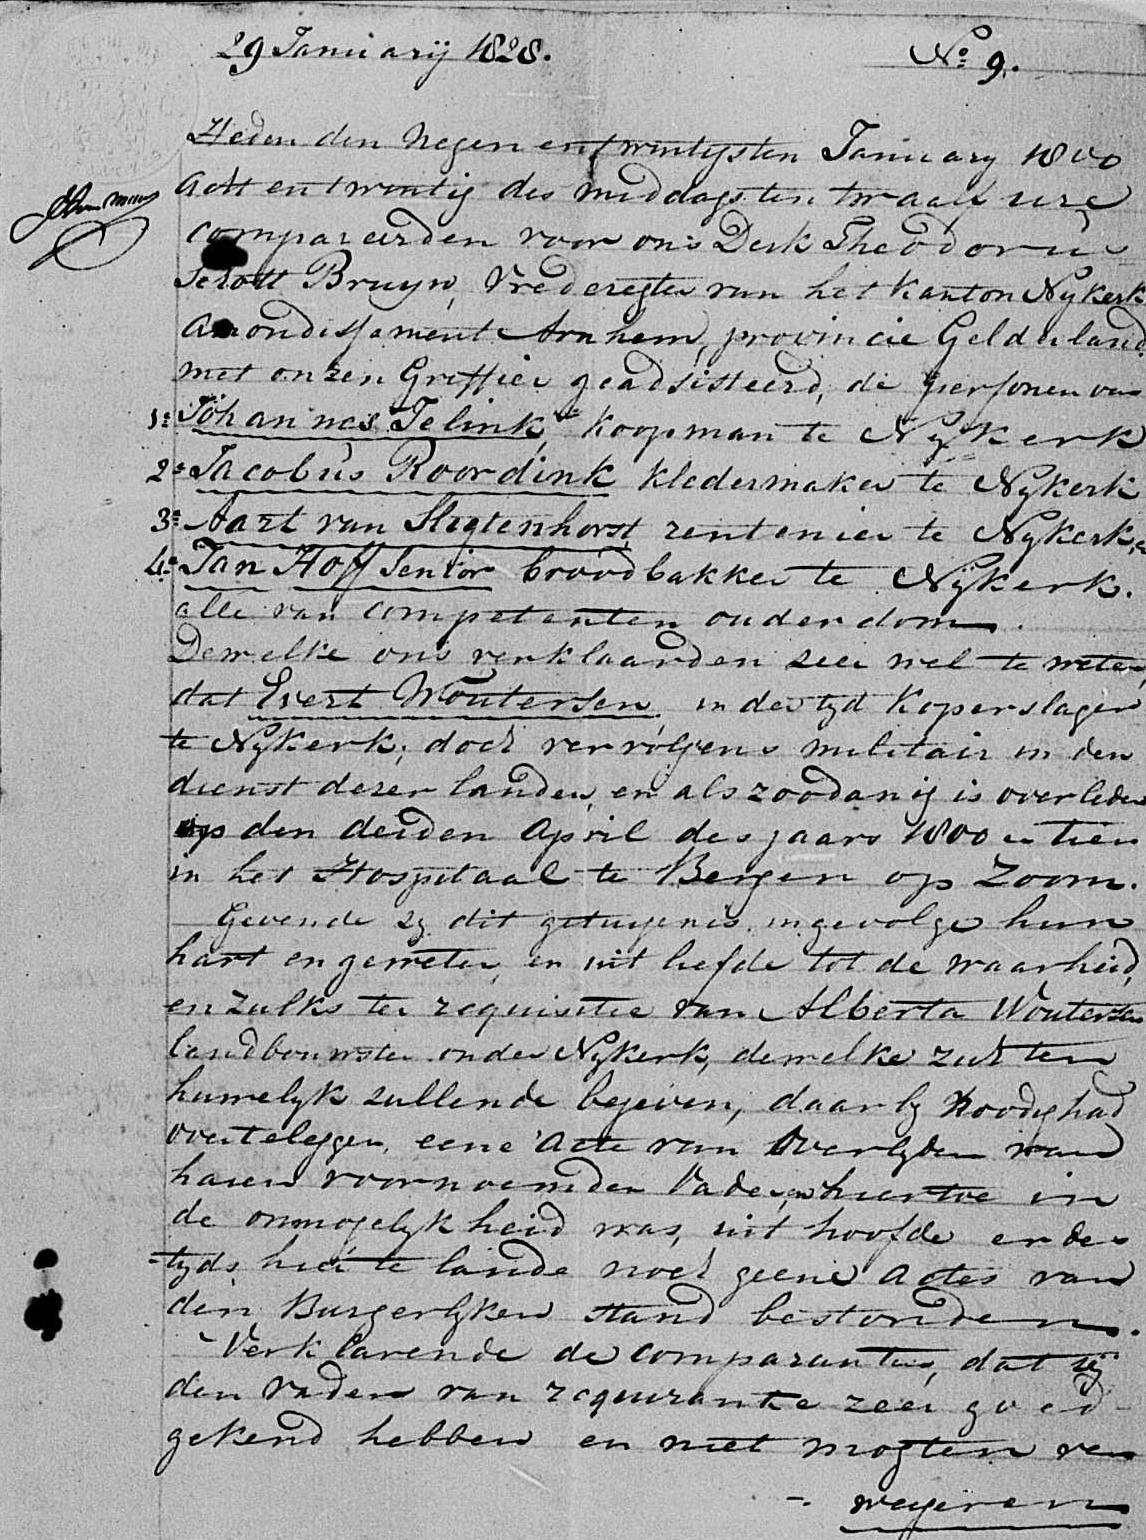 29 Januarij 1828. No 9.
Heden den Negen entwintigsten January 1800
acht en twintig des middags ten twaalf ure
compareerden voor ons Derk Theodorus
Schott Bruyn, Vrederegter van het Kanton Nykerk
Arrondissement Arnhem, provincie Gelderland
met onzen Griffier geadsisteerd, de personen van
1e Johannes Telink, Koopman te Nykerk
2e Jacobus Roordink kledermaker te Nykerk
3e Aart van Sligtenhorst rentenier te Nykerk, en
4e Jan Hoff Senior broodbakker te Nykerk.
alle van competenten ouderdom.
Dewelke ons verklaarden zeer wel te weten,
dat Evert Woutersen, in der tyd Koperslager
te Nykerk; doch vervolgens militair in den
dienst dezer landen, en als zoodanig is overleden
op den derden April des jaars 1800 en tien
in het Hospitaal te Bergen op Zoom.
Gevende zy dit getuigenis, ingevolge hun
hart en geweten, en uit liefde tot de waarheid,
en zulks ter requisitie van Alberta Woutersen
landbouwster onder Nykerk, dewelke zich ten
huwelyk zullende begeven, daar by Noodig had
overteleggen, eene Acte van Overlyden van
haren voornoemden Vader, en hiertoe in
de onmogelykheid was, uit hoofde er des
tyds hier te lande noch geene Actes van
den Burgerlyken Stand bestonden.
Verklarende de Comparanten, dat zij
den Vader van requirante zeer goed
gekend hebben en niet mogten ver
-. weyeren